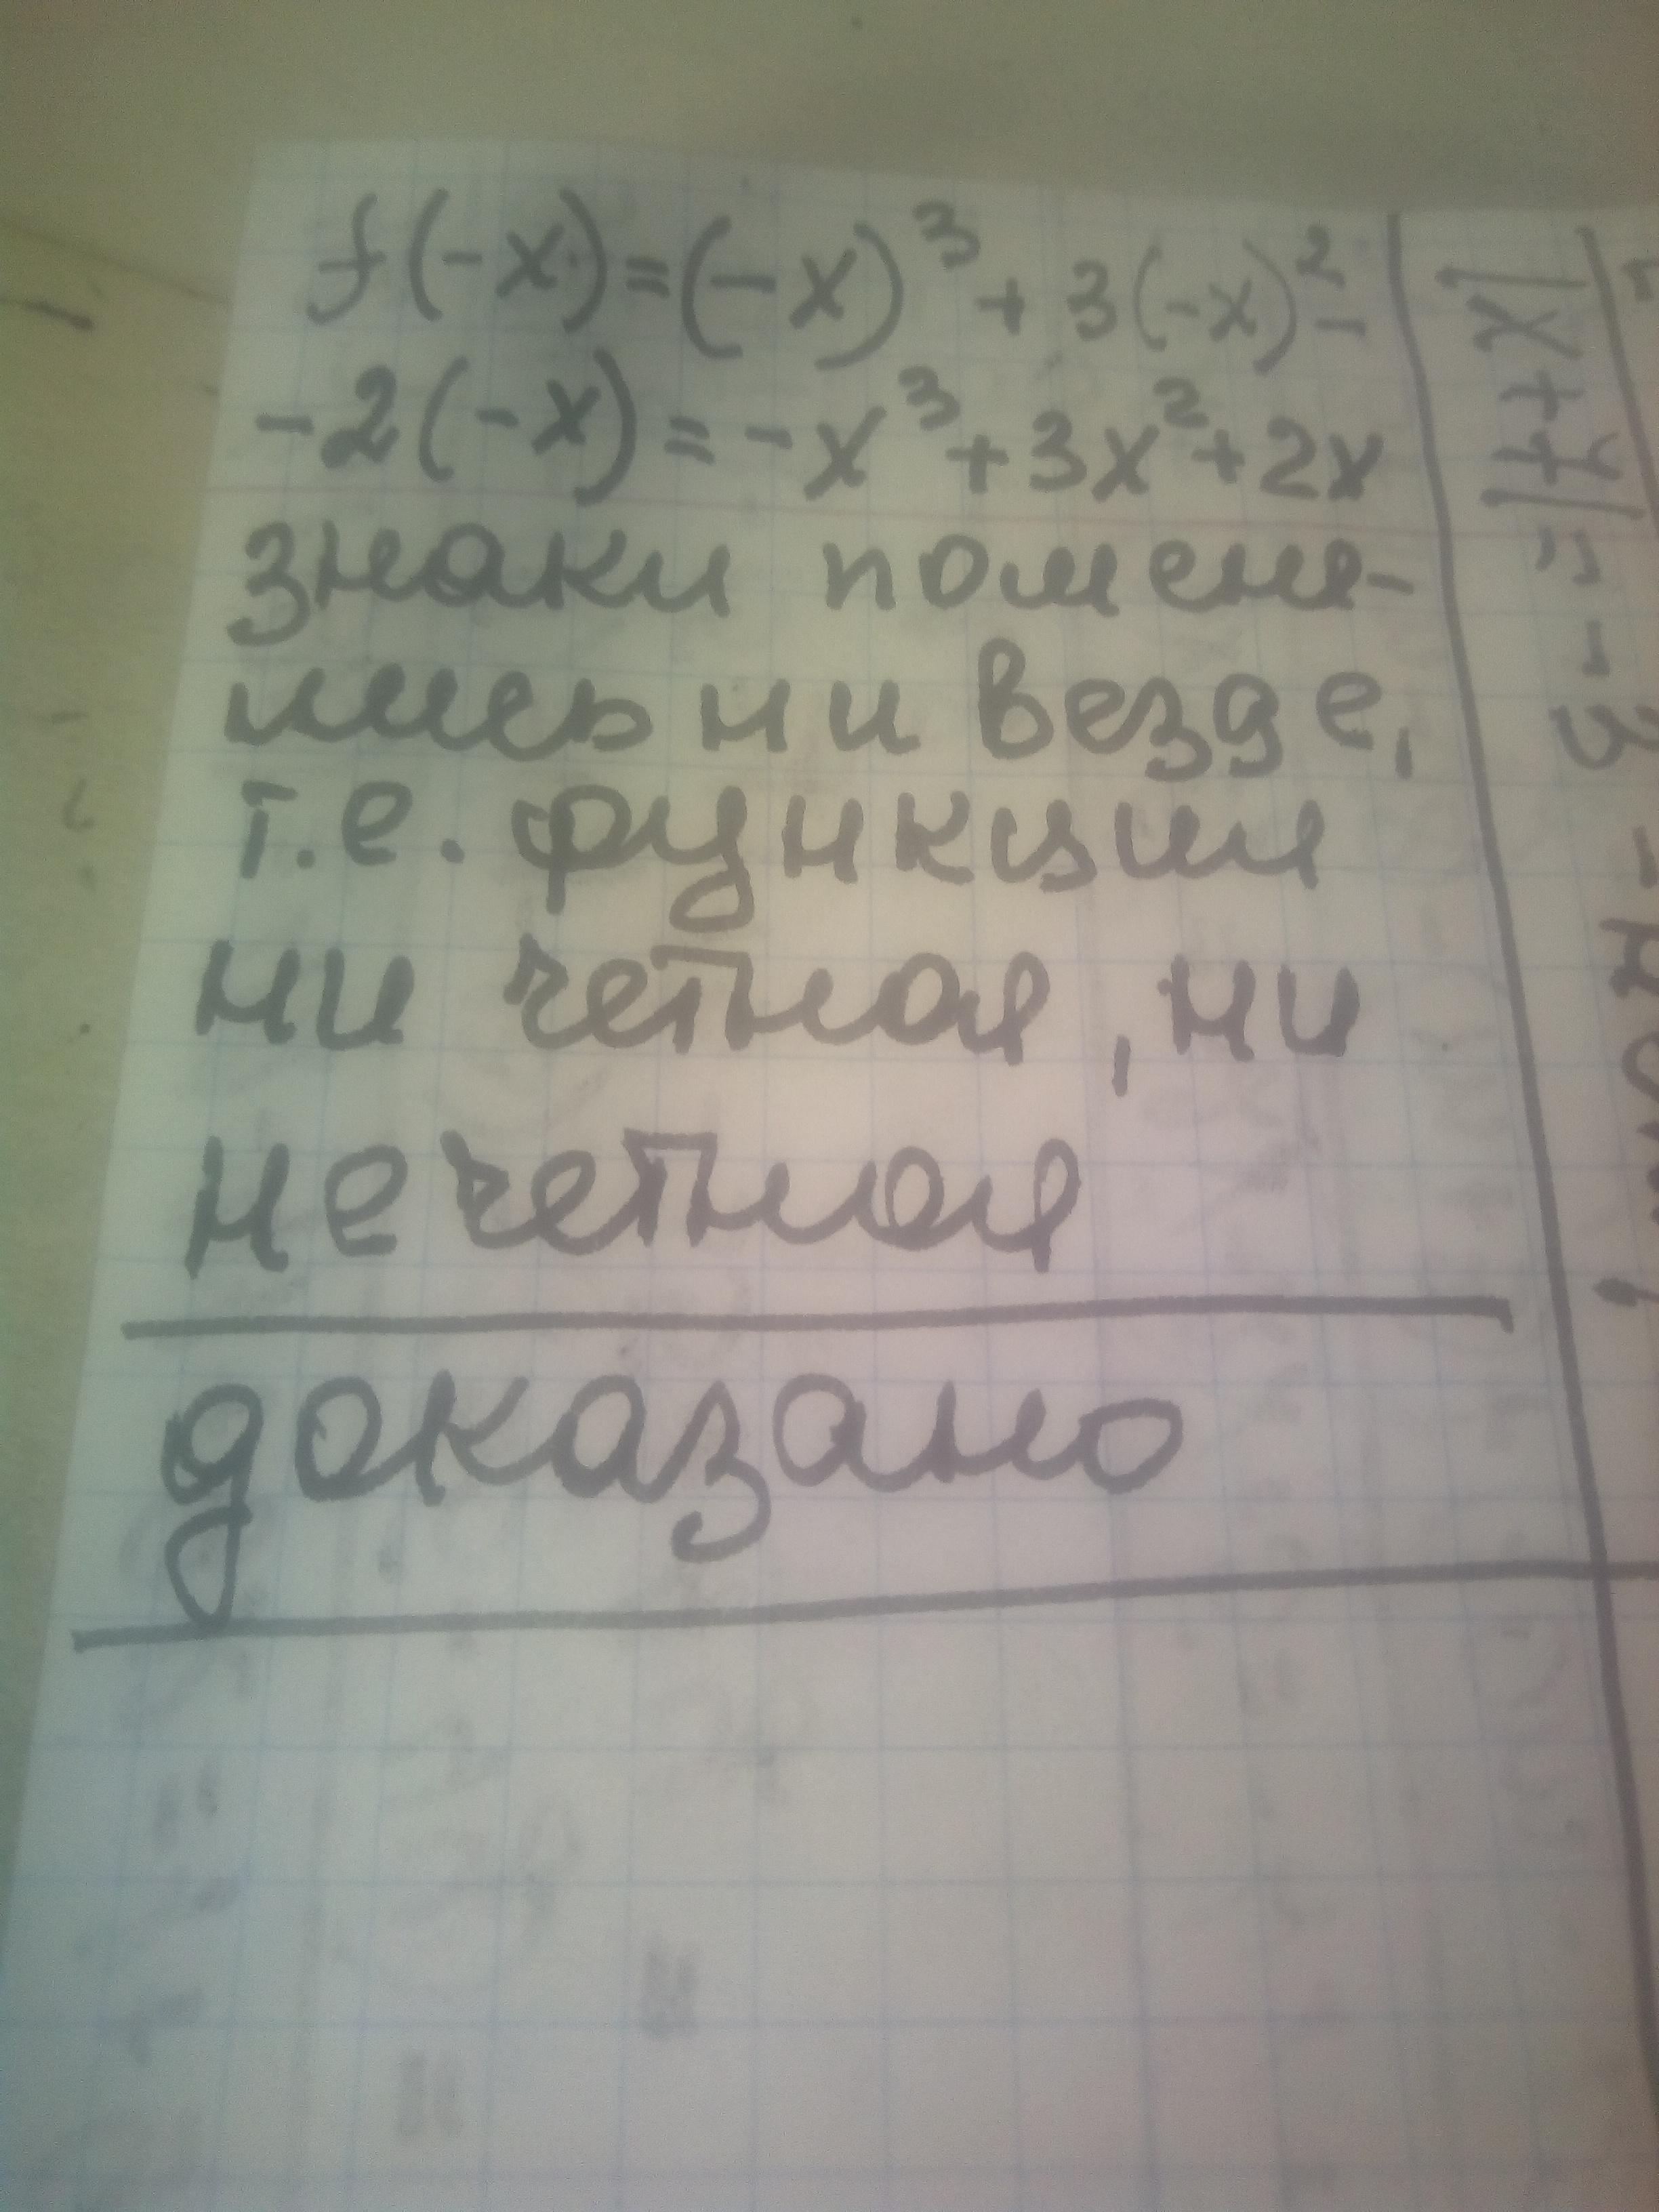 f(-x)=(-x)³+3(-x)²-
-2(-x)=-x³+3x²+2x
знаки поменя-
лись ни везде,
т.е. функция
ни четная, ни
нечетная
доказано